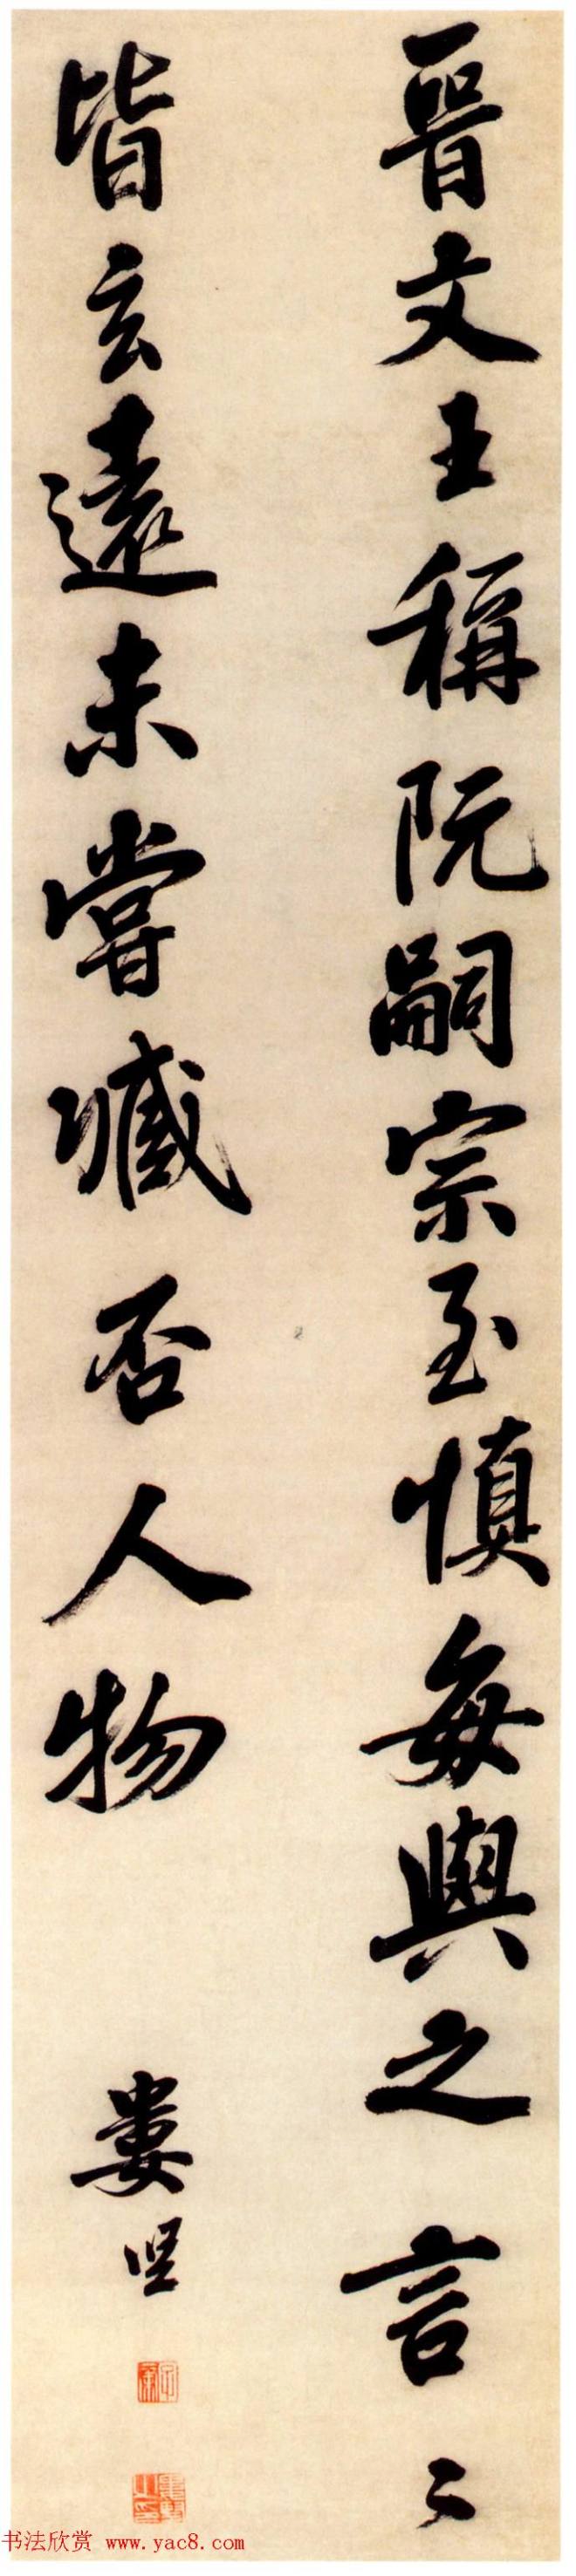 晉文王稱阮嗣宗至慎每與之言〻
皆玄遠未嘗臧否人物
婁堅
子柔
婁堅之印
书法欣赏 www.yac8.com